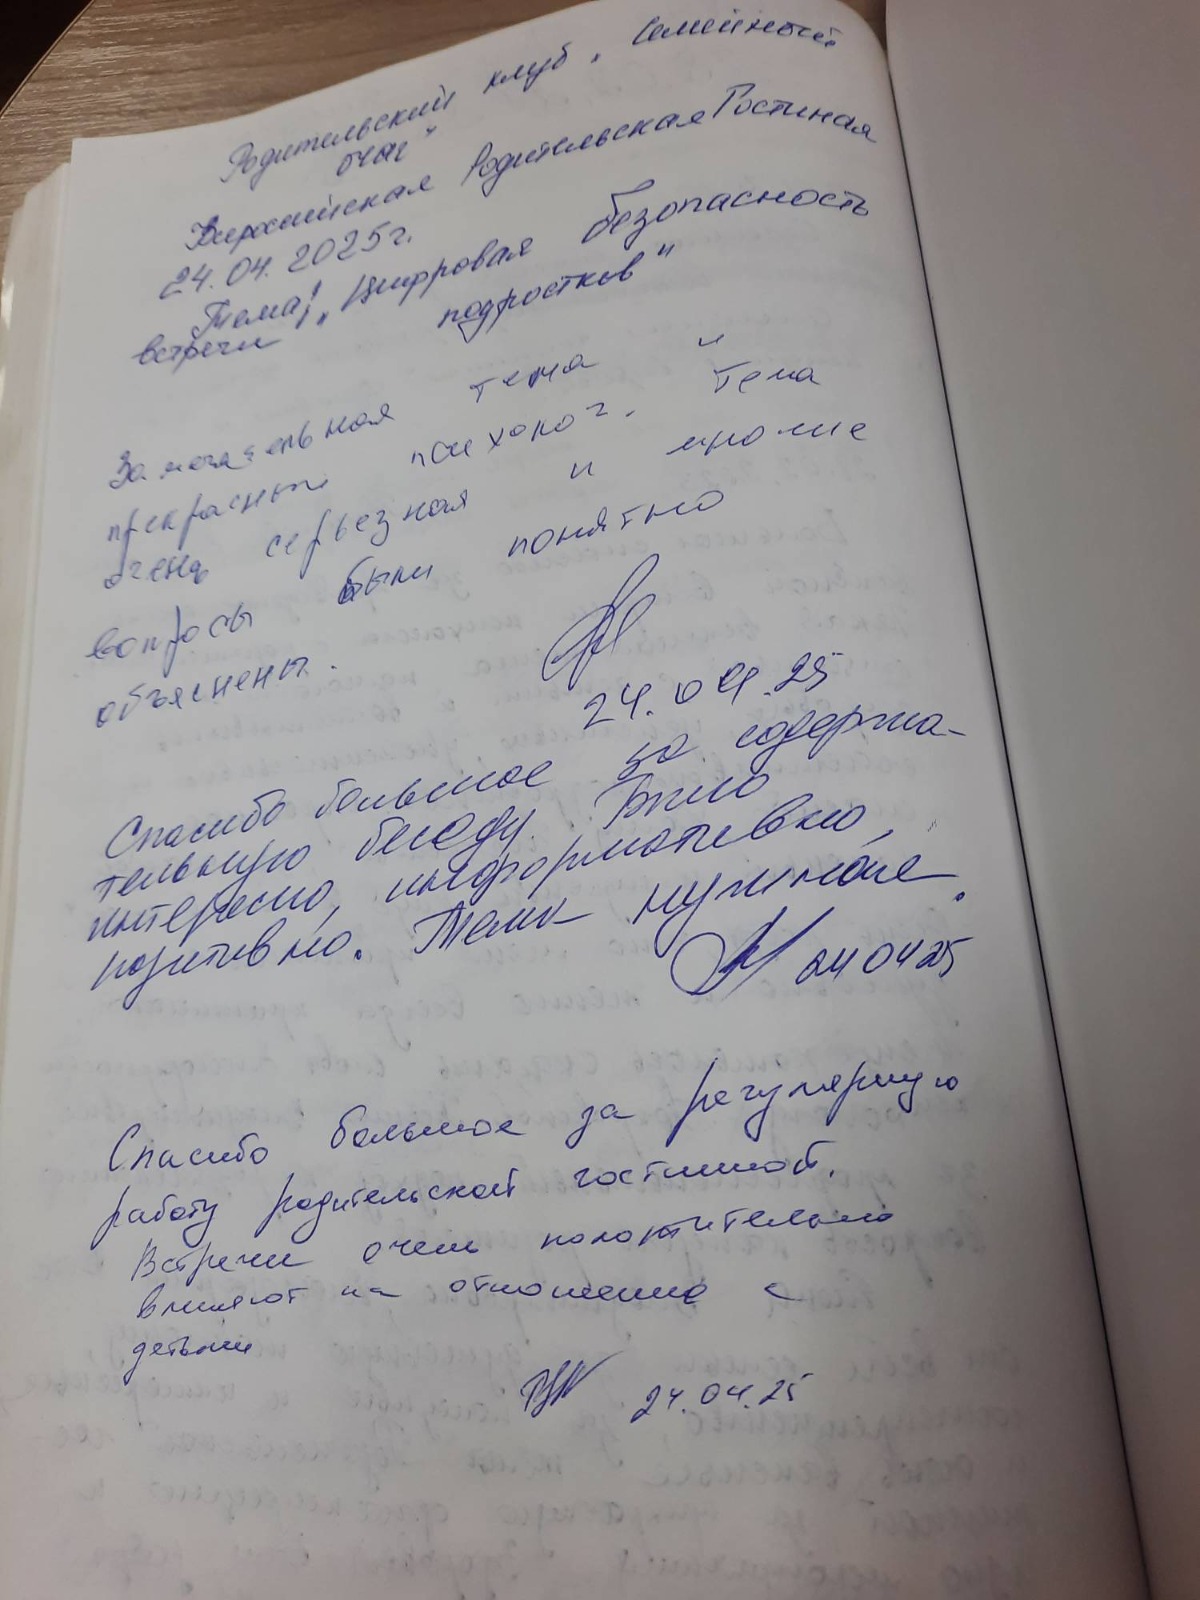 Родительский клуб „Семейный
очаг"
Всероссийская Родительская Гостиная
24.04.2025г.
Тема: „Цифровая безопасность
встречи подростков"
Замечательная тема и
прекрасный психолог. Тема
очень серьезная и многие
вопросы были понятно
объяснены.
24.04.25
Спасибо большое за содержа-
тельную беседу. Было
интересно, информативно,
позитивно. Тема нужная.
24 04 25
Спасибо большое за регулярную
работу родительской гостинной.
Встречи очень положительно
влияют на отношение с
детьми
24.04.25